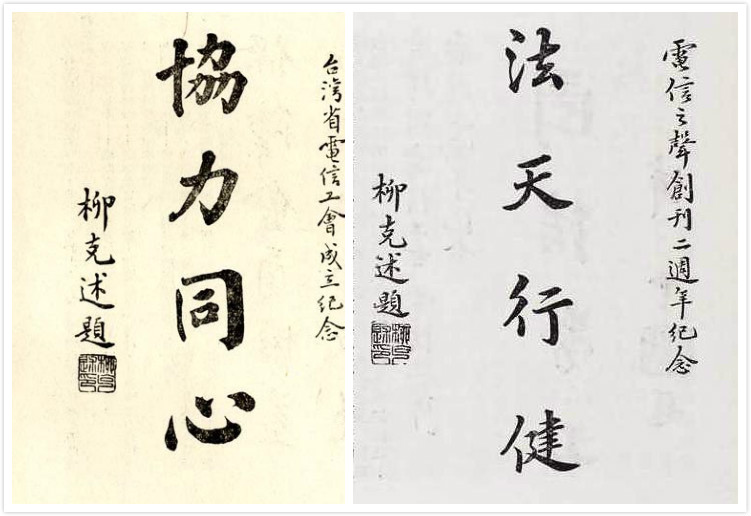 台灣省電信工會成立紀念
協力同心
柳克述題
電信之聲創刊二週年紀念
法天行健
柳克述題